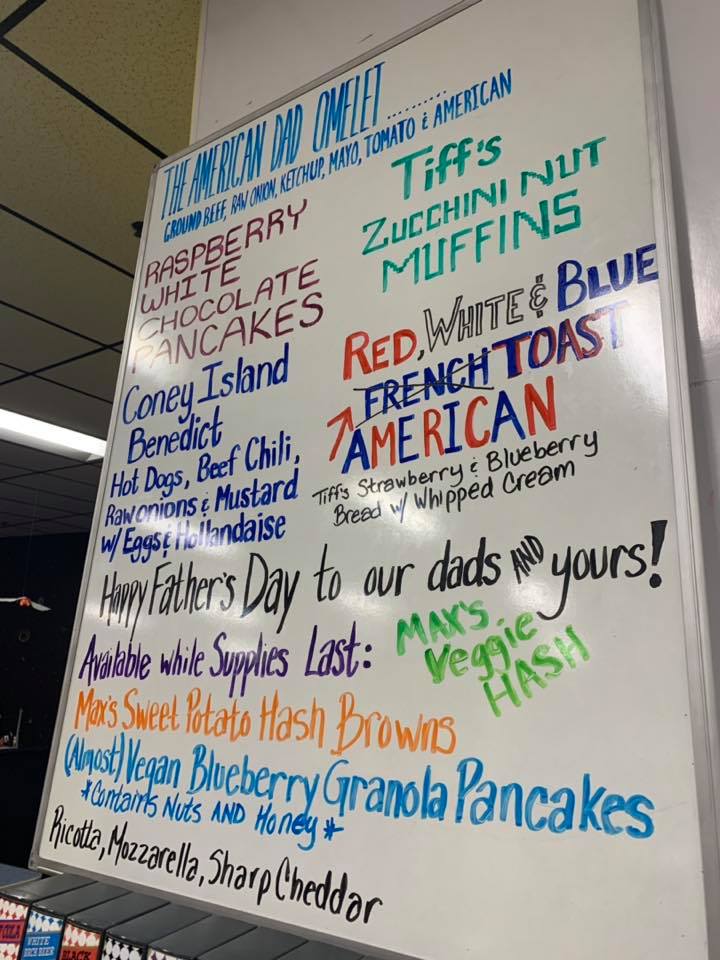 THE AMERICAN DAD OMELET..........
GROUND BEEF, RAW ONION, KETCHUP, MAYO, TOMATO & AMERICAN
RASPBERRY
WHITE
CHOCOLATE
PANCAKES
Tiff's
ZUCCHINI NUT
MUFFINS
Coney Island
Benedict
Hot Dogs, Beef Chili,
Raw onions & Mustard
w/ Eggs & Hollandaise
RED, WHITE & BLUE
FRENCH TOAST
AMERICAN
Tiff's Strawberry & Blueberry
Bread w/ Whipped Cream
Happy Father's Day to our dads AND yours!
Available while Supplies Last:
MAX'S
Veggie
HASH
Max's Sweet Potato Hash Browns
(Almost) Vegan Blueberry Granola Pancakes
*Contains Nuts AND Honey*
Ricotta, Mozzarella, Sharp Cheddar
WHITE
BIRCH BEER
BLACK